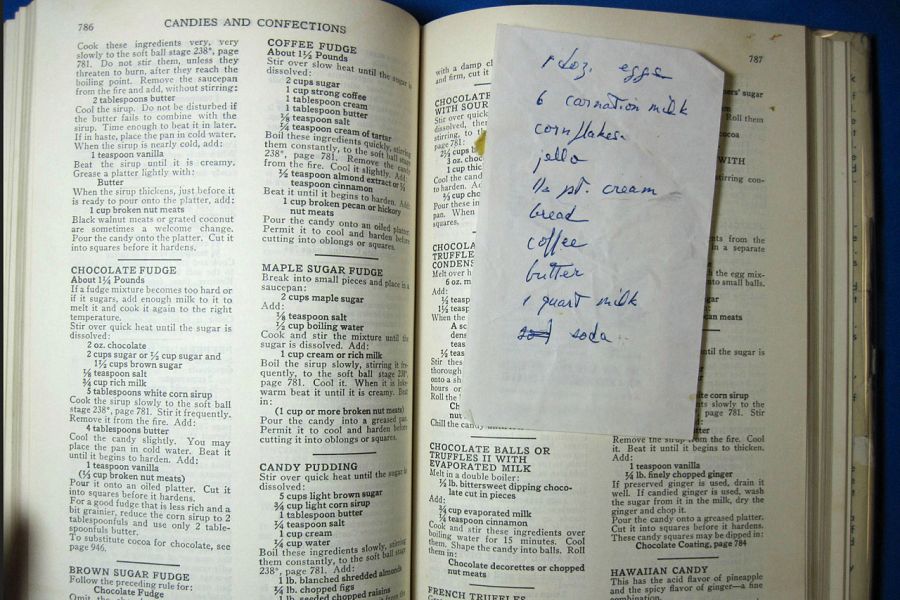 786 CANDIES AND CONFECTIONS
Cook these ingredients very, very
slowly to the soft ball stage 238°, page
781. Do not stir them, unless they
threaten to burn, after they reach the
boiling point. Remove the saucepan
from the fire and add, without stirring:
2 tablespoons butter
Cool the sirup. Do not be disturbed if
the butter fails to combine with the
sirup. Time enough to beat it in later.
If in haste, place the pan in cold water.
When the sirup is nearly cold, add:
1 teaspoon vanilla
Beat the sirup until it is creamy.
Grease a platter lightly with:
Butter
When the sirup thickens, just before it
is ready to pour onto the platter, add:
1 cup broken nut meats
Black walnut meats or grated coconut
are sometimes a welcome change.
Pour the candy onto the platter. Cut it
into squares before it hardens.
CHOCOLATE FUDGE
About 1¼ Pounds
If a fudge mixture becomes too hard or
if it sugars, add enough milk to it to
melt it and cook it again to the right
temperature.
Stir over quick heat until the sugar is
dissolved:
2 oz. chocolate
2 cups sugar or ½ cup sugar and
1½ cups brown sugar
⅛ teaspoon salt
¾ cup rich milk
5 tablespoons white corn sirup
Cook the sirup slowly to the soft ball
stage 238°, page 781. Stir it frequently.
Remove it from the fire. Add:
4 tablespoons butter
Cool the candy slightly. You may
place the pan in cold water. Beat it
until it begins to harden. Add:
1 teaspoon vanilla
(½ cup broken nut meats)
Pour it onto an oiled platter. Cut it
into squares before it hardens.
For a good fudge that is less rich and a
bit grainier, reduce the corn sirup to 2
tablespoonfuls and use only 2 table-
spoonfuls butter.
To substitute cocoa for chocolate, see
page 946.
BROWN SUGAR FUDGE
Follow the preceding rule for:
Chocolate Fudge
Omit the
COFFEE FUDGE
About 1½ Pounds
Stir over slow heat until the sugar is
dissolved:
2 cups sugar
1 cup strong coffee
1 tablespoon cream
1 tablespoon butter
⅛ teaspoon salt
¼ teaspoon cream of tartar
Boil these ingredients quickly, stirring
them constantly, to the soft ball stage
238°, page 781. Remove the candy
from the fire. Cool it slightly. Add:
½ teaspoon almond extract or ½
teaspoon cinnamon
Beat it until it begins to harden. Add:
1 cup broken pecan or hickory
nut meats
Pour the candy onto an oiled platter.
Permit it to cool and harden before
cutting into oblongs or squares.
MAPLE SUGAR FUDGE
Break into small pieces and place in a
saucepan:
2 cups maple sugar
Add:
⅛ teaspoon salt
½ cup boiling water
Cook and stir the mixture until the
sugar is dissolved. Add:
1 cup cream or rich milk
Boil the sirup slowly, stirring it fre-
quently, to the soft ball stage 238°,
page 781. Cool it. When it is luke-
warm beat it until it is creamy. Beat
in:
(1 cup or more broken nut meats)
Pour the candy into a greased pan.
Permit it to cool and harden before
cutting it into oblongs or squares.
CANDY PUDDING
Stir over quick heat until the sugar is
dissolved:
5 cups light brown sugar
¾ cup light corn sirup
1 tablespoon butter
¼ teaspoon salt
1 cup cream
¾ cup water
Boil these ingredients slowly, stirring
them constantly, to the soft ball stage
238°, page 781. Add:
1 lb. blanched shredded almonds
¼ lb. chopped figs
¼ lb. seeded chopped raisins
787
1 doz. eggs
6 carnation milk
cornflakes
jello
½ pt. cream
bread
coffee
butter
1 quart milk
soda
with a damp
and firm, cut it
CHOCOLATE
WITH SOUR
Stir over quick
dissolved, then
stirring, to
page 781:
2½ cups
3 oz.
Cool the cand
to harden. Ad
¾ cup
Pour these in
pan. When
squares.
TRUFFLE
CONDENS
Melt over h
6 oz. m
Add:
⅛ teasp
1½ teasp
When the
Stir these
thorough
onto a sh
hours or
Roll the
Chill the candy until
CHOCOLATE BALLS OR
TRUFFLES II WITH
EVAPORATED MILK
Melt in a double boiler:
¼ lb. bittersweet dipping choco-
late cut in pieces
Add:
¾ cup evaporated milk
¼ teaspoon cinnamon
Cook and stir these ingredients over
boiling water for 15 minutes. Cool
them. Shape the candy into balls. Roll
them in:
Chocolate decorettes or chopped
nut meats
FRENCH TRUFFLES
sugar
Roll them
cocoa
WITH
stirring con-
ents from the
in a separate
the egg mix-
into small balls.
pecan meats
until the sugar is
corn sirup
slowly to the
page 781. Stir
Remove the sirup from the fire. Cool
it. Beat it until it begins to thicken.
Add:
1 teaspoon vanilla
¼ lb. finely chopped ginger
If preserved ginger is used, drain it
well. If candied ginger is used, wash
the sugar from it in the milk, dry the
ginger and chop it.
Pour the candy onto a greased platter.
Cut it into squares before it hardens.
These candy squares may be dipped in:
Chocolate Coating, page 784
HAWAIIAN CANDY
This has the acid flavor of pineapple
and the spicy flavor of ginger—a fine
combination.